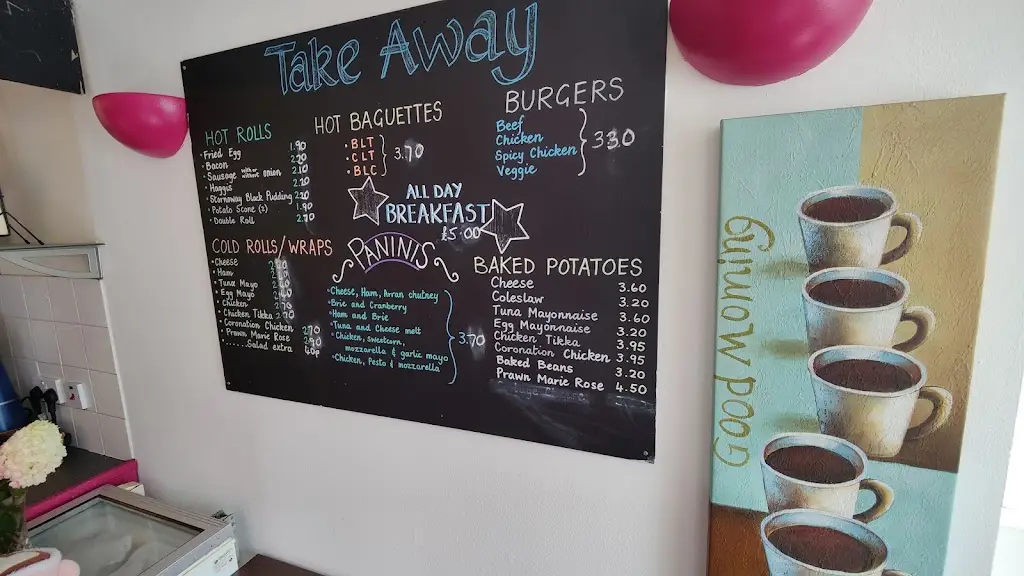 Take Away
HOT ROLLS
• Fried Egg 1.90
• Bacon 2.20
• Sausage with or without onion 2.10
• Haggis 2.10
• Stornoway Black Pudding 2.20
• Potato Scone (2) 1.90
• Double Roll 2.70
COLD ROLLS/WRAPS
• Cheese
• Ham
• Tuna Mayo
• Egg Mayo
• Chicken
• Chicken Tikka 2.70
• Coronation Chicken 2.70
• Prawn Marie Rose 2.90
.......Salad extra 40p
HOT BAGUETTES
• BLT
• CLT 3.70
• BLC
ALL DAY
BREAKFAST
£5.00
PANINIS
• Cheese, Ham, Arran chutney
• Brie and Cranberry
• Ham and Brie
• Tuna and Cheese melt 3.70
• Chicken, sweetcorn,
mozzarella & garlic mayo
• Chicken, Pesto & mozzarella
BURGERS
Beef
Chicken 3.30
Spicy Chicken
Veggie
BAKED POTATOES
Cheese 3.60
Coleslaw 3.20
Tuna Mayonnaise 3.60
Egg Mayonnaise 3.20
Chicken Tikka 3.95
Coronation Chicken 3.95
Baked Beans 3.20
Prawn Marie Rose 4.50
Good Morning